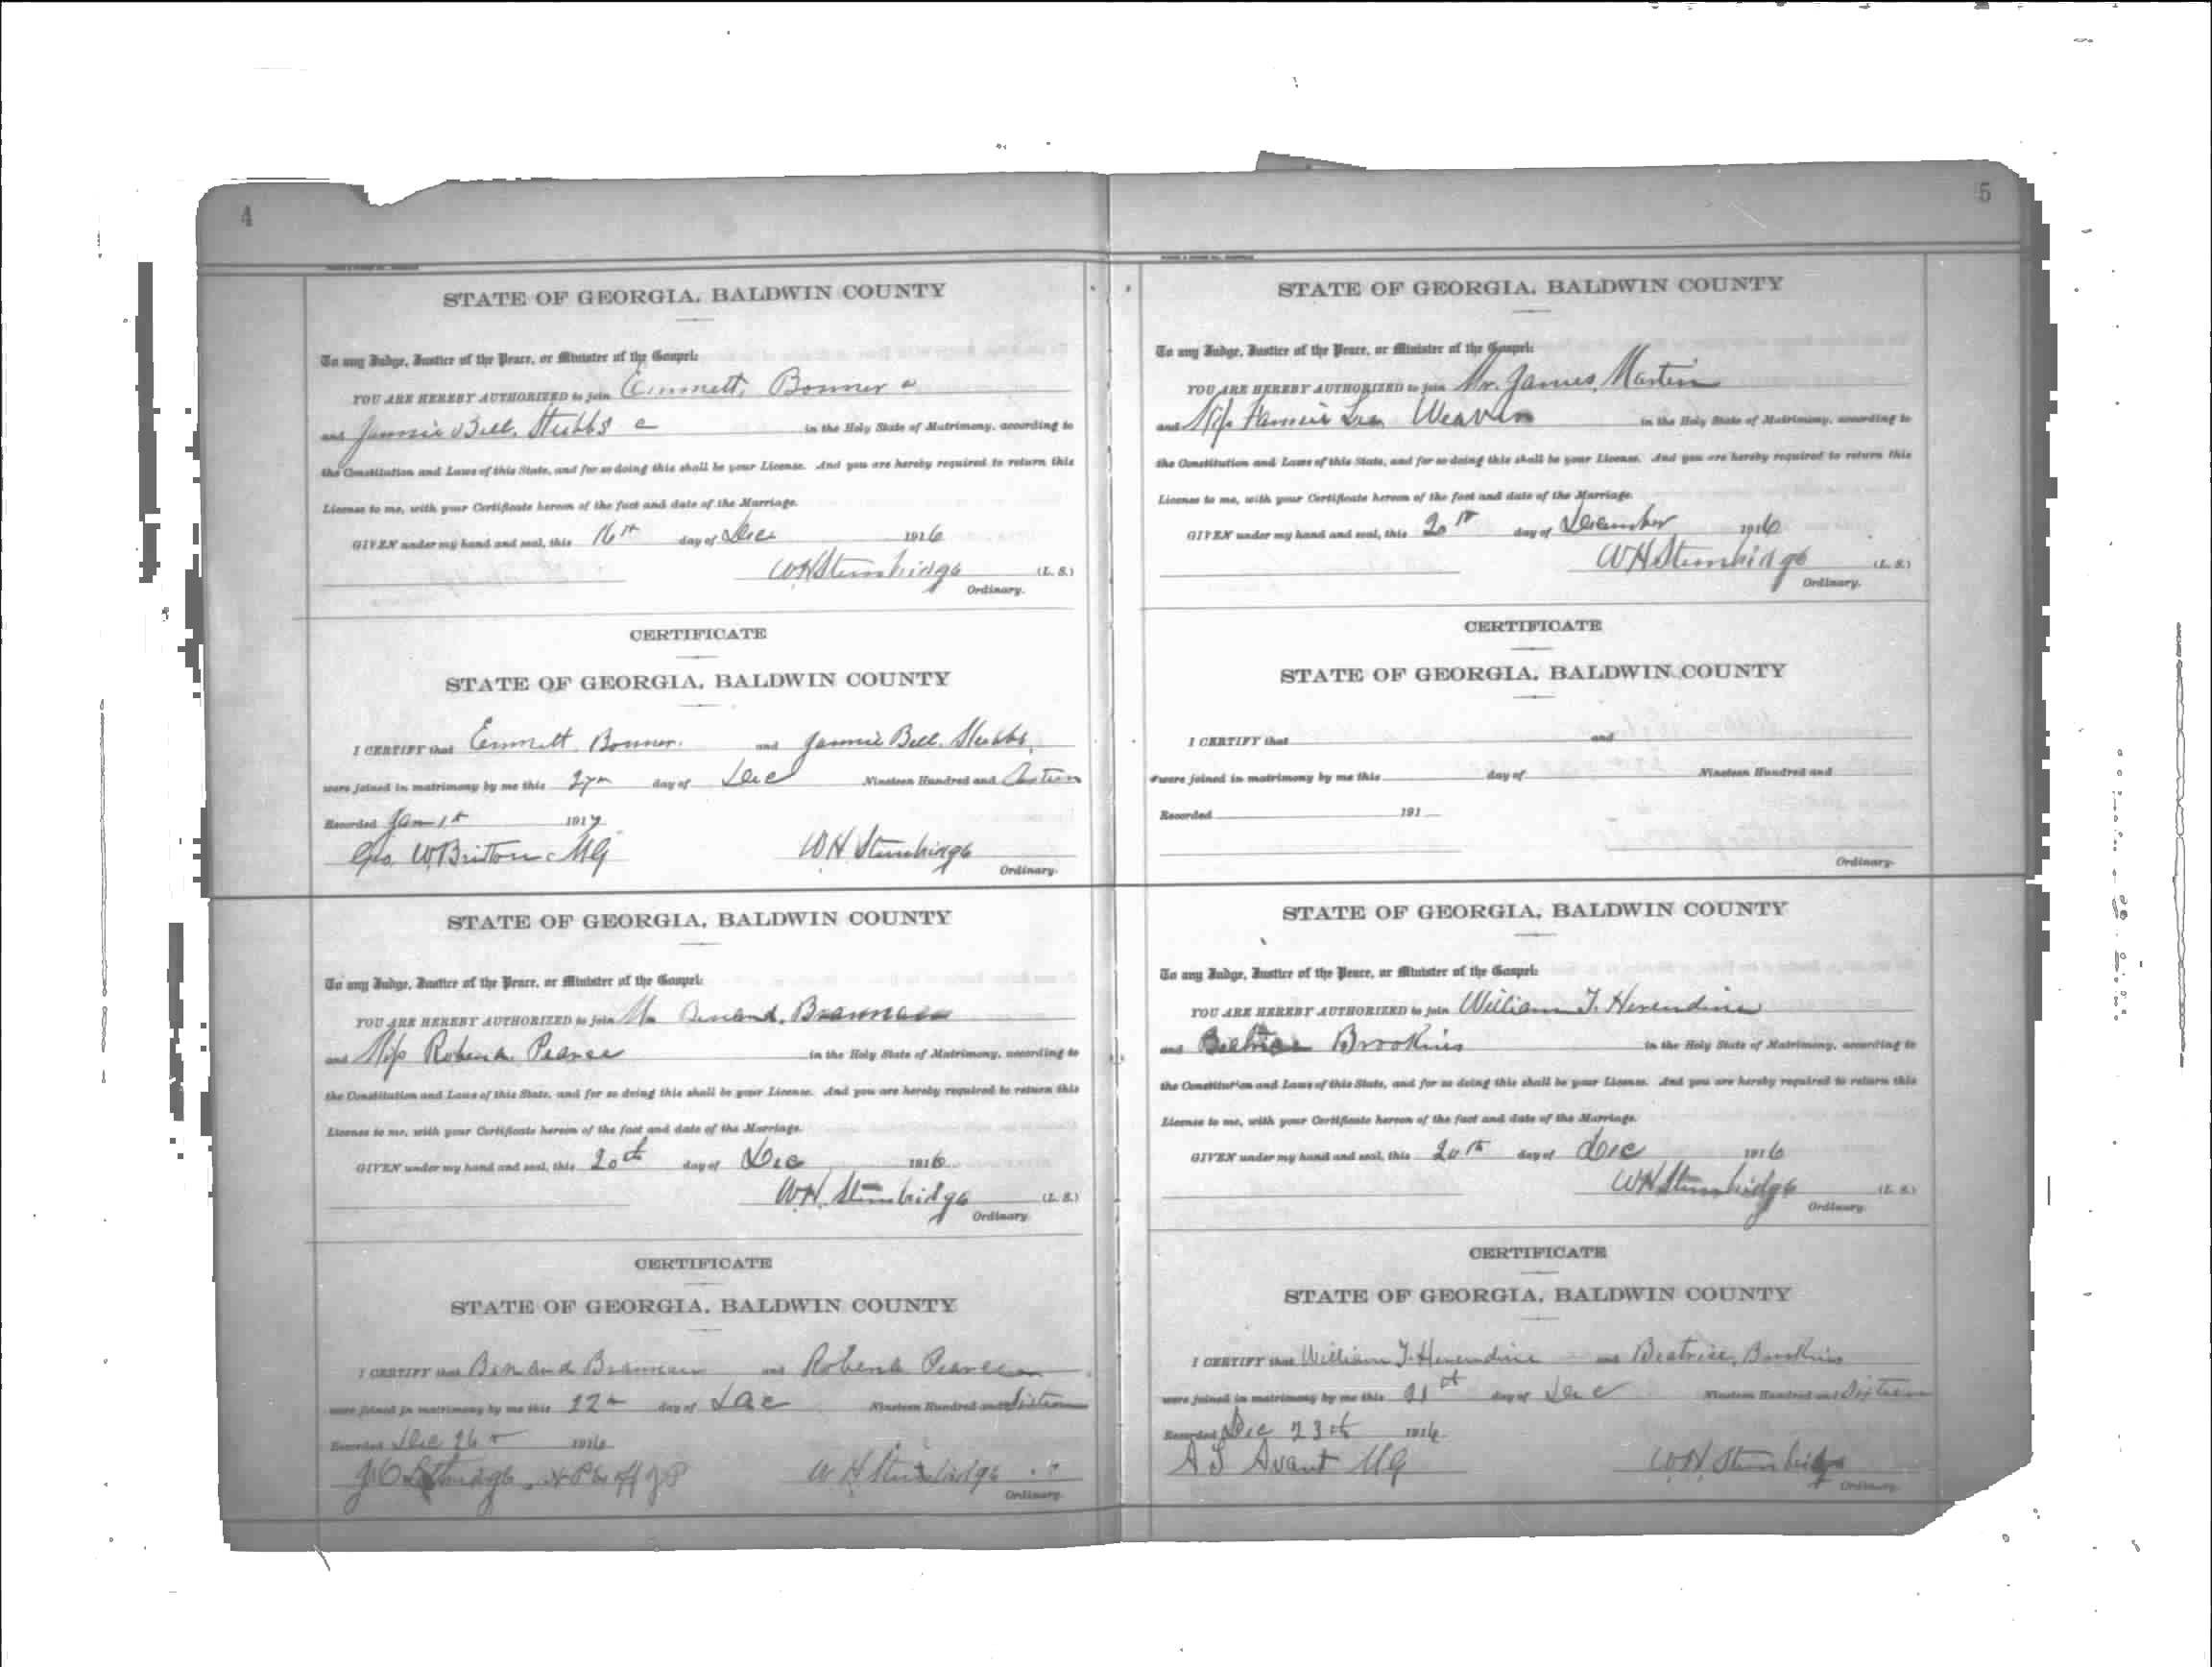 4
STATE OF GEORGIA, BALDWIN COUNTY
To any Judge, Justice of the Peace, or Minister of the Gospel:
YOU ARE HEREBY AUTHORIZED to join Emmett Bonner c
and Jannie Bell Stubbs c in the Holy State of Matrimony, according to
the Constitution and Laws of this State, and for so doing this shall be your License. And you are hereby required to return this
License to me, with your Certificate hereon of the fact and date of the Marriage.
GIVEN under my hand and seal, this 16th day of Dec 1916
WH Stembridge (L. S.)
Ordinary.
CERTIFICATE
STATE OF GEORGIA, BALDWIN COUNTY
I CERTIFY that Emmett Bonner and Jannie Bell Stubbs
were joined in matrimony by me this 27 day of Dec Nineteen Hundred and Sixteen
Recorded Jan 1st 1917
Geo. W. Britton MG WH Stembridge
Ordinary.
STATE OF GEORGIA, BALDWIN COUNTY
To any Judge, Justice of the Peace, or Minister of the Gospel:
YOU ARE HEREBY AUTHORIZED to join Mr
and Miss Pearce in the Holy State of Matrimony, according to
the Constitution and Laws of this State, and for so doing this shall be your License. And you are hereby required to return this
License to me, with your Certificate hereon of the fact and date of the Marriage.
GIVEN under my hand and seal, this 20th day of Dec 1916
W.H. Stembridge (L. S.)
Ordinary
CERTIFICATE
STATE OF GEORGIA, BALDWIN COUNTY
I CERTIFY that and Pearce
were joined in matrimony by me this 22 day of Dec Nineteen Hundred and Sixteen
Recorded Dec 26 1916
W H Stembridge
Ordinary
5
STATE OF GEORGIA, BALDWIN COUNTY
To any Judge, Justice of the Peace, or Minister of the Gospel:
YOU ARE HEREBY AUTHORIZED to join Mr. James Martin
and Miss Fannie Lee Weaver in the Holy State of Matrimony, according to
the Constitution and Laws of this State, and for so doing this shall be your License. And you are hereby required to return this
License to me, with your Certificate hereon of the fact and date of the Marriage.
GIVEN under my hand and seal, this 20th day of December 1916
WH Stembridge (L. S.)
Ordinary.
CERTIFICATE
STATE OF GEORGIA, BALDWIN COUNTY
I CERTIFY that and
were joined in matrimony by me this day of Nineteen Hundred and
Recorded 191
Ordinary.
STATE OF GEORGIA, BALDWIN COUNTY
To any Judge, Justice of the Peace, or Minister of the Gospel:
YOU ARE HEREBY AUTHORIZED to join William J. Herendine
and Beatrice Brookins in the Holy State of Matrimony, according to
the Constitution and Laws of this State, and for so doing this shall be your License. And you are hereby required to return this
License to me, with your Certificate hereon of the fact and date of the Marriage.
GIVEN under my hand and seal, this 20th day of Dec 1916
WH Stembridge (L. S.)
Ordinary.
CERTIFICATE
STATE OF GEORGIA, BALDWIN COUNTY
I CERTIFY that William J. Herendine and Beatrice Brookins
were joined in matrimony by me this 21st day of Dec Nineteen Hundred and Sixteen
Recorded Dec 23rd 1916
A S Avant MG W.H. Stembridge
Ordinary.